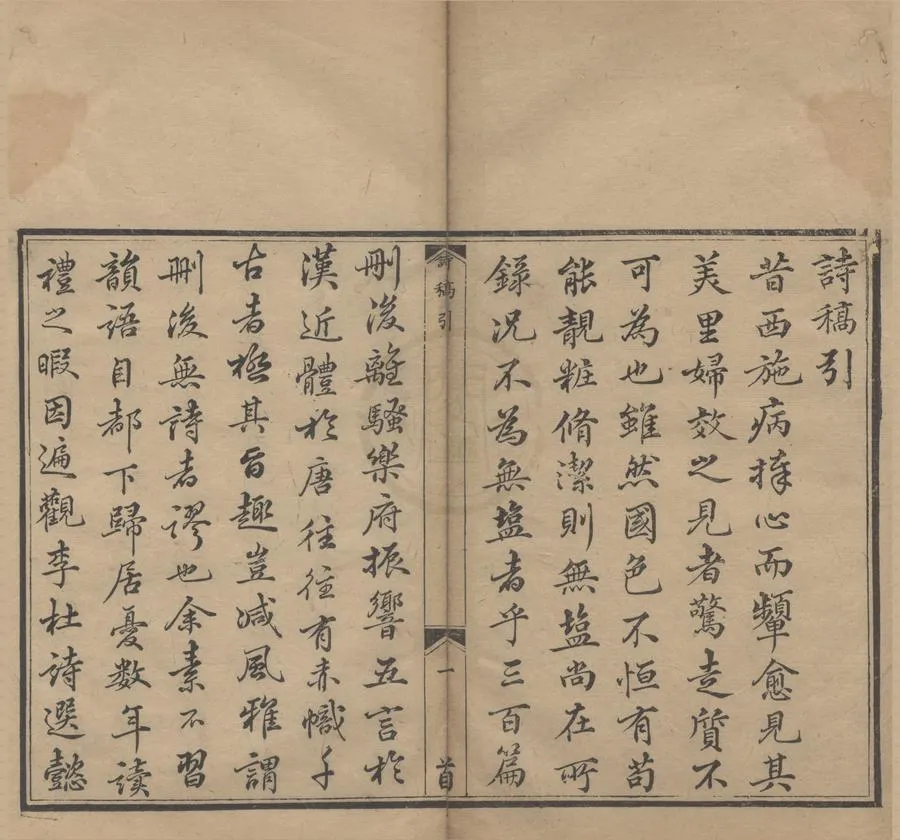 詩稿引
昔西施病捧心而顰愈見其
美里婦效之見者驚走質不
可為也雖然國色不恒有苟
能靚粧脩潔則無塩尚在所
錄况不為無塩者乎三百篇
詩稿引
一
首
刪後離騷樂府振響五言於
漢近體於唐往往有赤幟千
古者極其旨趣豈減風雅謂
刪後無詩者謬也余素不習
韻語自都下歸居憂數年讀
禮之暇因遍觀李杜詩選懿